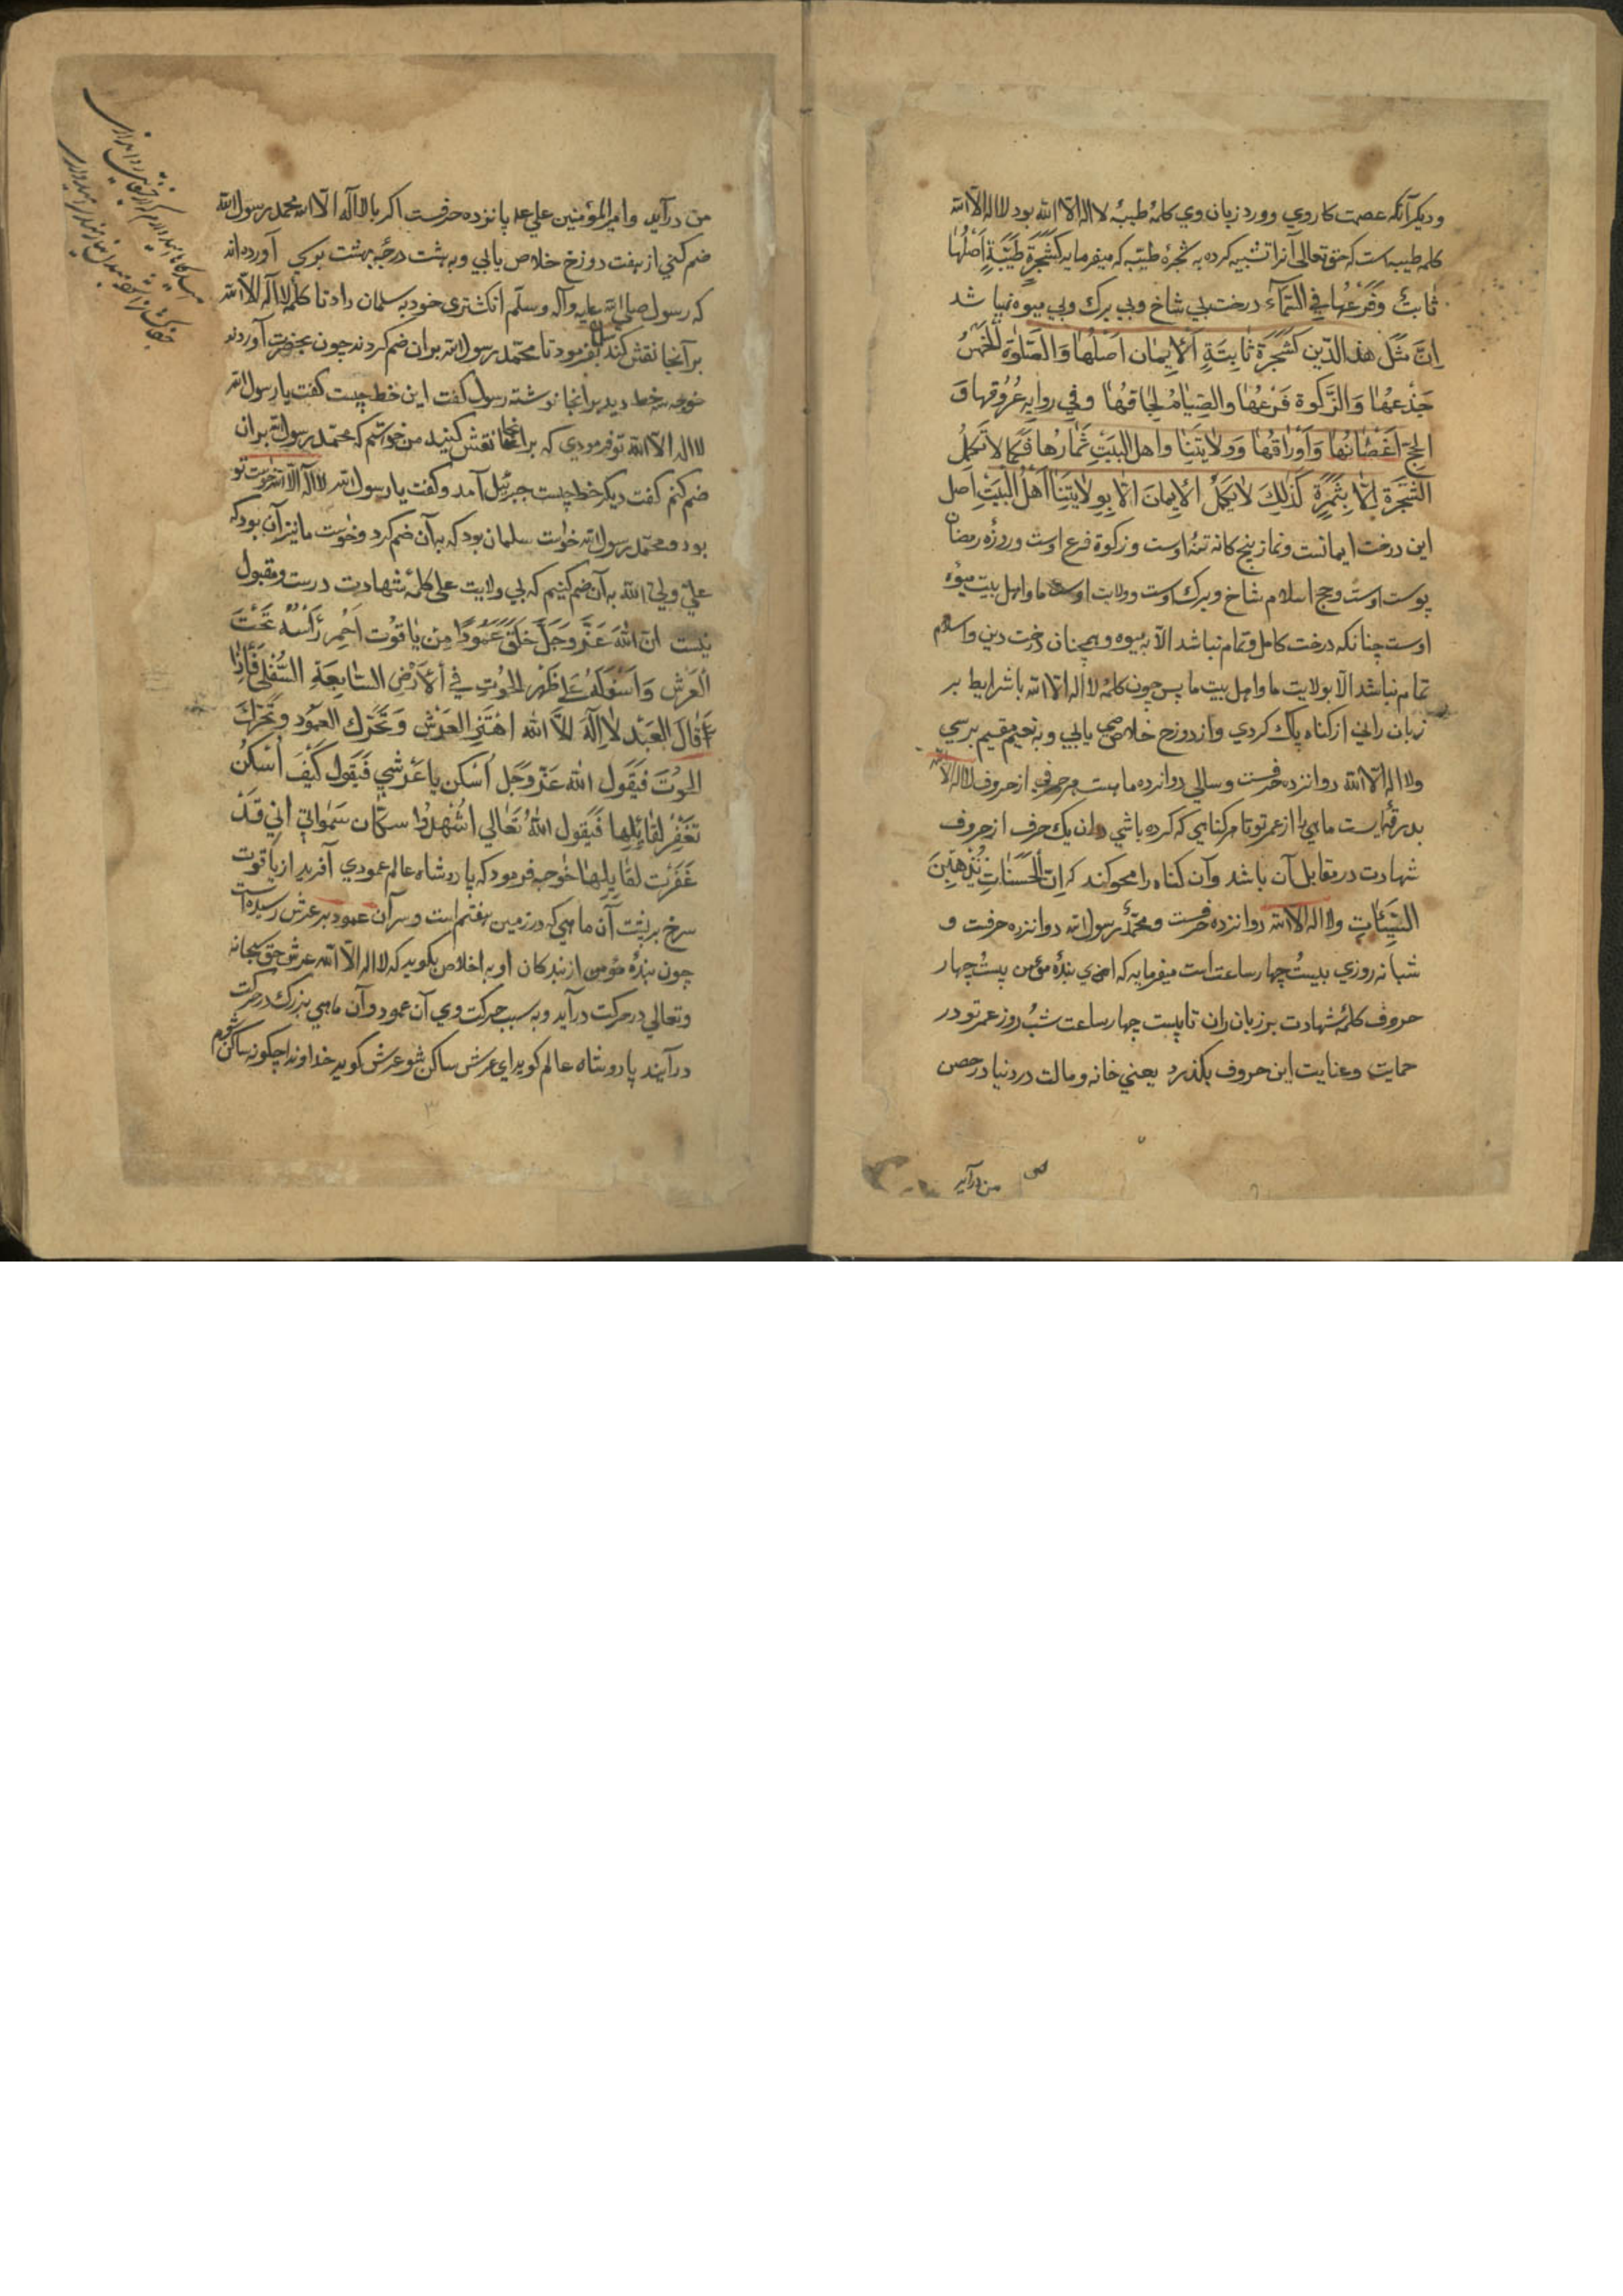 و دیکر آنکه عصمت کار وي و ورد زبان وي کلمهٔ طیبهٔ لا اله الا الله بود لا اله الا الله
کلمه طیبه است که حق تعالی آنرا تشبیه کرده به شجرهٔ طیّبه که میفرماید کَشَجَرَةٍ طَیِّبَةٍ اَصْلُهٰا
ثٰابِتٌ وَفَرْعُهٰا فِي السَّمٰآء درخت بي شاخ وبي برك وبي میوه نباشد
اِنَّ مَثَلَ هٰذ الدّین کَشَجَرَةٍ ثٰابِتَةٍ اَلْایمٰان اَصْلُهٰا وَالصَّلٰوة الْخَمْسُ
جِذْعُهٰا وَالزَّکوة فَرْعُهٰا وَالصِّیٰامُ لِحٰاقهٰا وفي روایه عُرُوقهٰا وَ
الحج اَغْصٰانُهٰا وَاَوْرٰاقُهٰا وَوِلٰایَتُنٰا واهل البَیْتِ ثِمٰارُهٰا فَکَمٰا لا تَکْمُلُ
الشَّجَرَة اِلّا بِثَمَرَةٍ کَذٰلِكَ لٰا یَکْمُلُ الْایمٰانَ الّا بِوِلٰایَتِنٰا اَهْلُ الْبَیْتِ اصل
این درخت ایمانست ونماز پنج کانه تنهٔ اوست و زکوة فرع اوست وروزهٔ رمضان
پوست اوست وحج اسلام شاخ وبرك اوست وولایت ما واهل بیت میوهٔ
اوست چنانکه درخت کامل وتمام نباشد الّا به میوه وهمچنان درخت دین واسلام
تمام نباشد الّا بولایت ما واهل بیت ما پس چون کلمهٔ لا اله الا الله با شرایط بر
زبان راني از کناه پاك کردي واز دوزخ خلاصي یابي وبه نعیم مقیم برسي
ولا اله الّا الله دوانزده حرفست وسالي دوانزده ماهست هر حرفي از حروف لا اله الا الله
بدرقهٔایست ماهي را از عمر تو تا هر کناهي که کرده باشي وان یك حرف از حروف
شهادت در مقابل آن باشد وآن کناه را محو کند که اِنَّ الْحَسَنٰاتِ یُذْهِبْنَ
السَّیِّئٰاتِ ولا اله الا الله دوانزده حرفست ومحمّدٌ رسول الله دوانزده حرفست و
شبانه روزي بیست چهار ساعت است میفرماید که اي بندهٔ مؤمن بیست چهار
حروف کلمهٔ شهادت بر زبان ران تا بیست چهار ساعت شب روز عمر تو در
حمایت وعنایت این حروف بکذرد یعني خانه و مالت در دنیا در حصن
من درآید
من درآید وامیر المؤمنین علي علیه پانزده حرفست اکر با لا اله الّا الله محمد رسول الله
ضم کني از هفت دوزخ خلاص یابي وبه هشت درجهٔ بهشت برسي آورده‌اند
که رسول صلی الله علیه وآله وسلّم انکشتری خود به سلمان داد تا کلمهٔ لا اله الّا الله
بر آنجا نقش کند سلمان بفرمود تا محمّد رسول الله بر ان ضم کردند چون بحضرت آوردند
خواجه سه خط دید بر انجا نوشته رسول کفت این خط چیست کفت یا رسول الله
لا اله الّا الله تو فرمودي که بر انجا نقش کنید من خواستم که محمّد رسول الله بر ان
ضم کنم کفت دیکر خط چیست جبرئیل آمد وکفت یا رسول الله لا اله الّا الله خواست تو
بود ومحمّد رسول الله خواست سلمان بود که به آن ضم کرد وخواست ما نیز آن بود که
عليٌّ وليّ الله به آن ضم کنیم که بي ولایت علی کلمهٔ شهادت درست ومقبول
نیست انّ اللّٰهَ عَزَّ وَجَلَّ خَلَقَ عَمُودًا مِن یٰاقُوت اَحْمر رَأْسُهُ تَحْتَ
الْعَرْش وَاَسْفَلَهُ عَلٰی ظَهْر الْحُوْتِ فِي الْاَرْضِ السّٰابِعَةِ السُّفْلٰی فَاِذٰا
قٰالَ الْعَبْد لٰا اِلٰهَ اِلَّا اللّٰه اهْتَزَّ العَرْش وَتَحَرَّك العَمُود وتَحَرَّكَ
الْحُوتَ فَیَقُول اللّٰه عَزَّ وَجَل اُسْکن یا عَرْشي فَیَقول کَیْفَ اَسْکُنُ
تغْفِرُ لقٰائِلِهٰا فَیَقول اللّٰهُ تَعٰالي اشْهَدُوا سکّان سَمٰواتي انّي قَدْ
غَفَرْت لقٰایِلِهٰا خواجه فرمود که پادشاه عالم عمودي آفرید از یاقوت
سرخ بر پشت آن ماهي که در زمین هفتم است وسر آن عمود بر عرش رسیده است
چون بندهٔ مؤمن از بندکان او به اخلاص بکوید که لا اله الّا الله عرش حق سبحانه
وتعالي در حرکت درآید وبه سبب حرکت وي آن عمود وآن ماهي بزرك در حرکت
درآیند پادشاه عالم کوید اي عرش ساکن شو عرش کوید خداوندا چکونه ساکن شوم